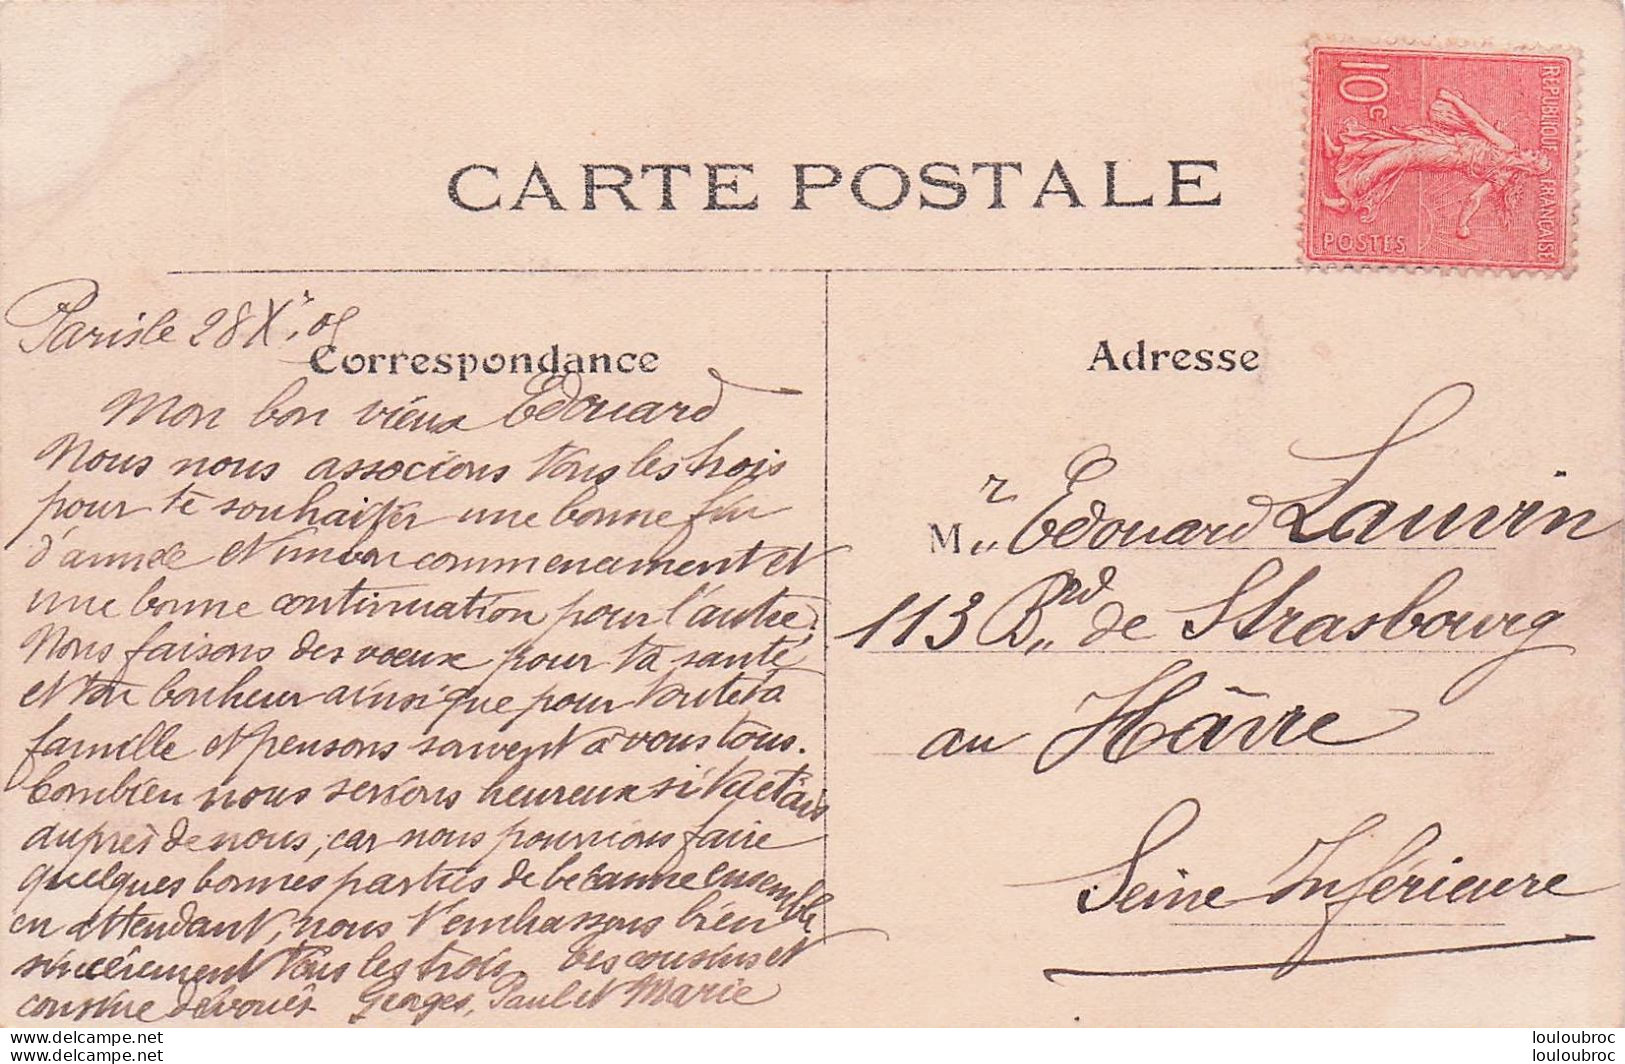 CARTE POSTALE
10c
REPUBLIQUE FRANÇAISE
POSTES
Paris le 28 Xr. 05
Correspondance
Mon bon vieux Edouard
Nous nous associons tous les trois
pour te souhaiter une bonne fin
d'année et un bon commencement et
une bonne continuation pour l'autre.
Nous faisons des voeux pour ta santé
et ton bonheur ainsi que pour toute ta
famille et pensons souvent à vous tous.
Combien nous serions heureux si tu étais
auprès de nous, car nous pourrions faire
quelques bonnes parties de bécanne ensemble
en attendant, nous t'embrassons bien
sincèrement tous les trois. tes cousins et
cousine dévoués Georges, Paul et Marie
Adresse
Mr Edouard Lauvin
113 Brd de Strasbourg
au Hâvre
Seine Inférieure
louloubroc
louloubroc